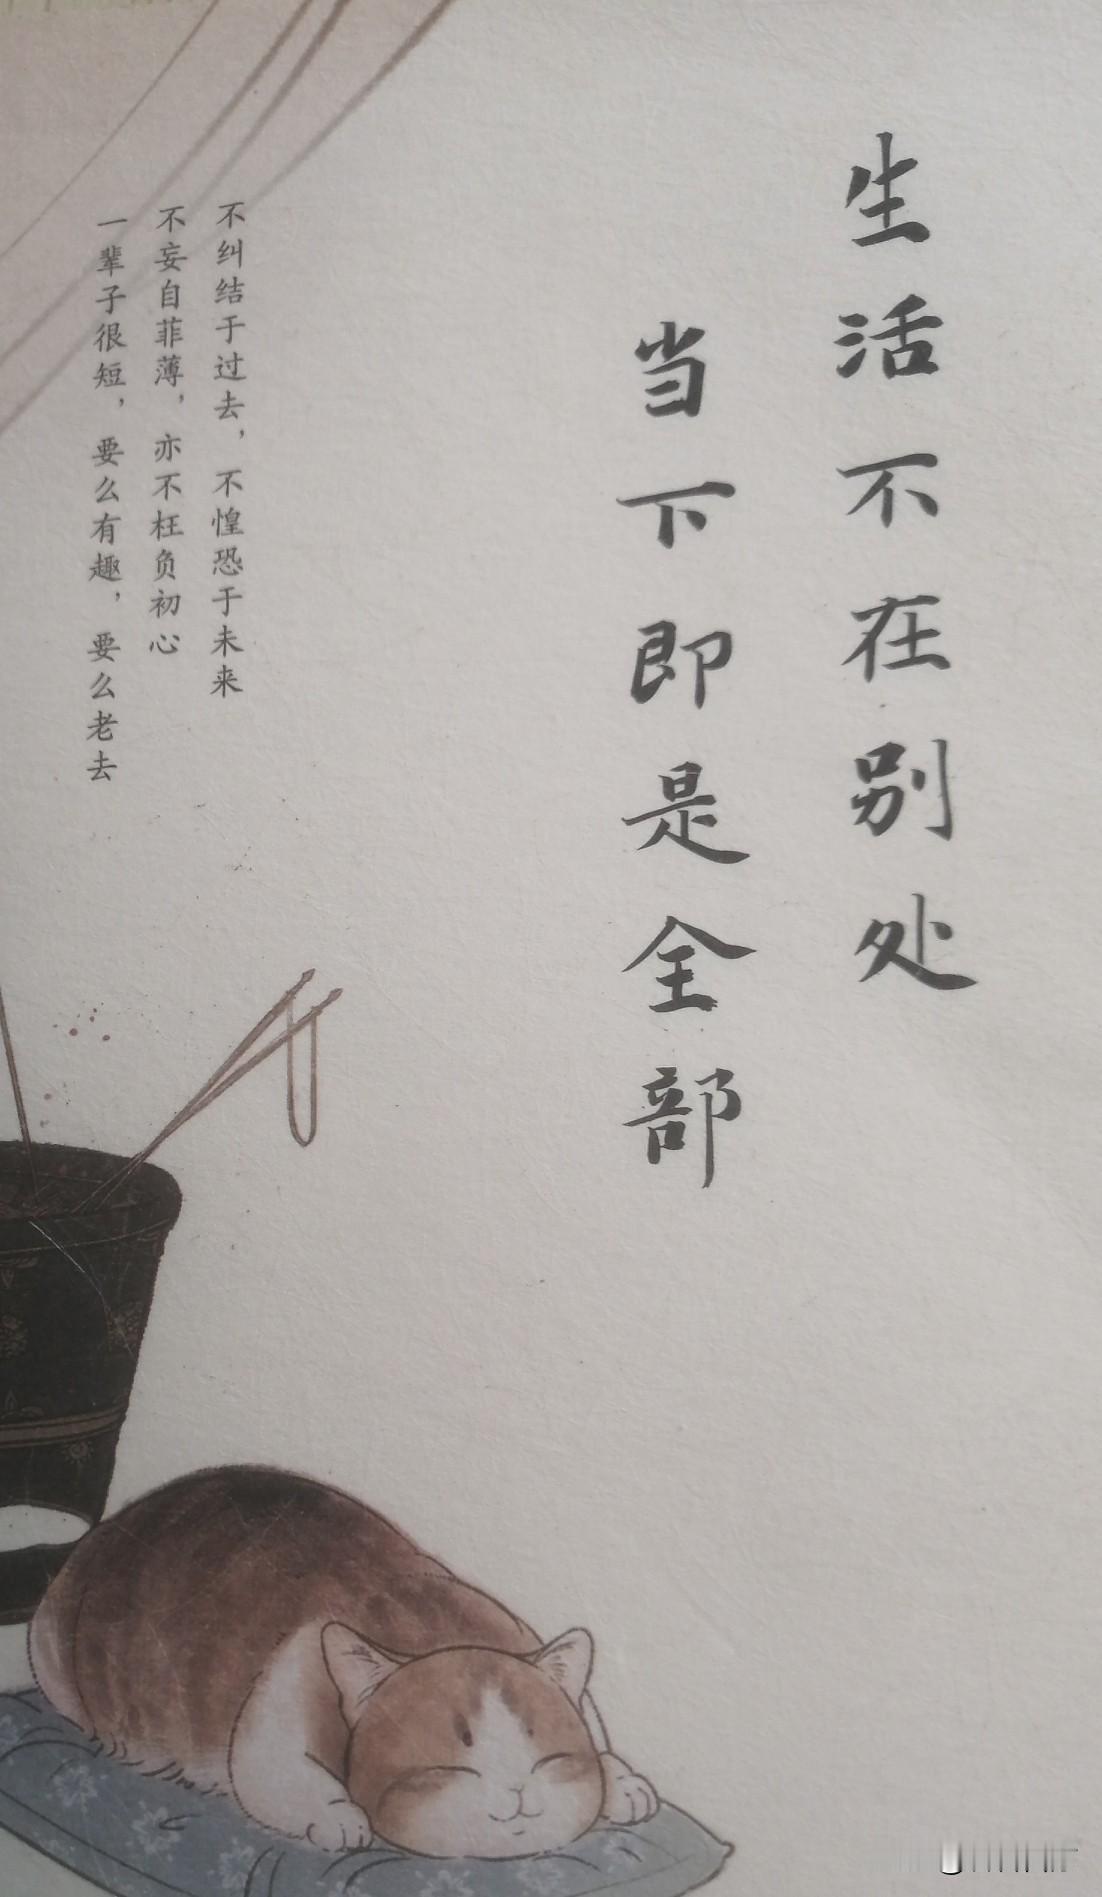 生活不在别处
当下即是全部
不纠结于过去，不惶恐于未来
不妄自菲薄，亦不枉负初心
一辈子很短，要么有趣，要么老去